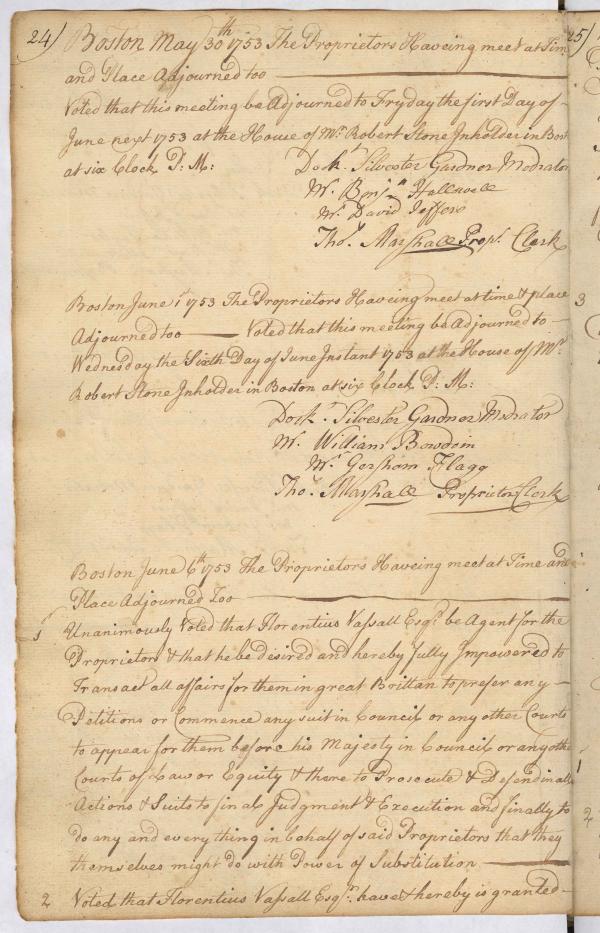 24)
Boston May 30th 1753 The Proprietors Haveing meet at Tim
and Place Adjourned too
Voted that this meeting be Adjourned to Fryday the first Day of
June next 1753 at the House of Mr. Robert Stone Inholder in Bost
at six Clock P: M:
Dockr. Silvester Gardner Modrator
Mr. Benjn. Hallwell
Mr. David Jeffers
Thos. Marshall Propr. Clerk
Boston June 1st 1753 The Proprietors Haveing meet at time & place
Adjourned too Voted that this meeting be Adjourned to
Wednesday the Sixth Day of June Instant 1753 at the House of Mr.
Robert Stone Inholder in Boston at six Clock P: M:
Dockr. Silvester Gardner Modrator
Mr. William Bowdoin
Mr. Gersham Flagg
Thos. Marshall Proprietors Clerk
Boston June 6th 1753 The Proprietors Haveing meet at Time and
Place Adjourned Too
1 Unanimously Voted that Florentius Vassall Esqr. be Agent for the
Proprietors & that he be desired and hereby fully Impowered to
Transact all affairs for them in great Brittan to prefer any
Petitions or Commence any suit in Council or any other Courts
to appear for them before his Majesty in Council or any othe
Courts of Law or Equity & there to Prosecute & Defend in all
Actions & Suits to final Judgment & Execution and finally to
do any and every thing in behalf of said Proprietors that they
themselves might do with Power of Substitution
2 Voted that Florentius Vassall Esqr. have & hereby is granted
25)
3
1
2